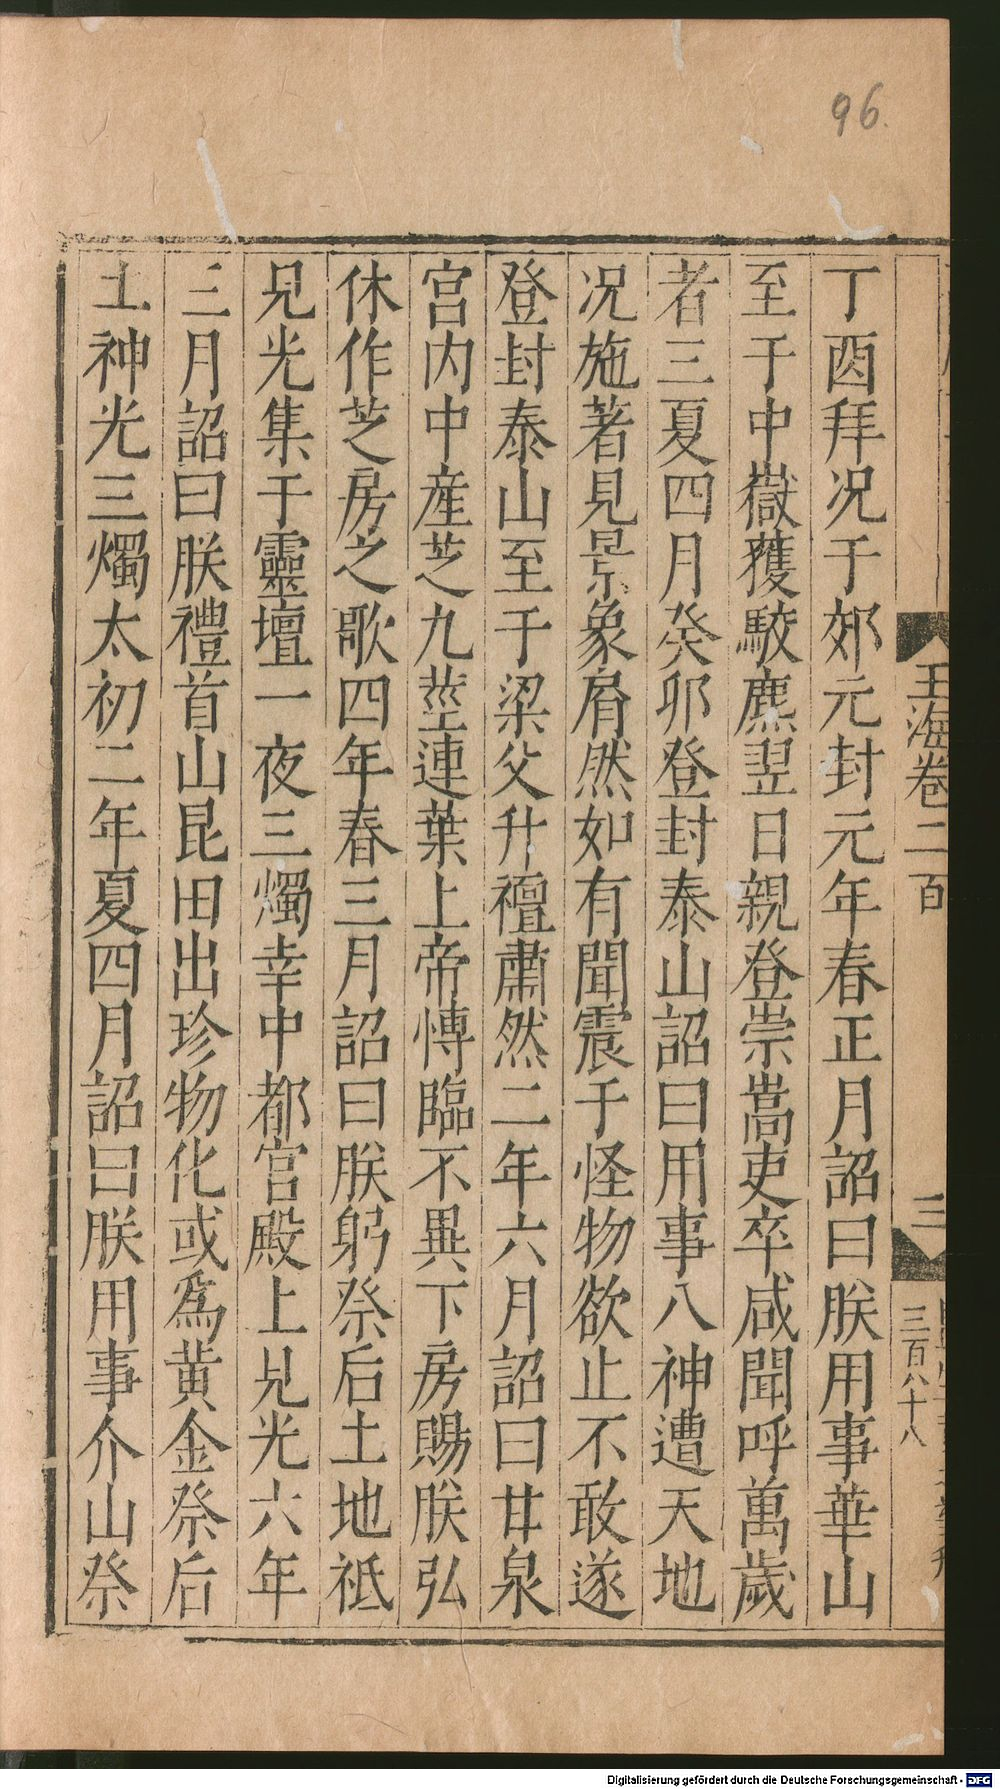 96.
玉海卷二百
三
三百八十八
丁酉拜况于郊元封元年春正月詔曰朕用事華山
至于中嶽獲駮麃翌日親登崇嵩吏卒咸聞呼萬歲
者三夏四月癸卯登封泰山詔曰用事八神遭天地
况施著見景象屑然如有聞震于怪物欲止不敢遂
登封泰山至于梁父升禮肅然二年六月詔曰甘泉
宮内中產芝九莖連葉上帝愽臨不異下房賜朕弘
休作芝房之歌四年春三月詔曰朕躬祭后土地祗
見光集于靈壇一夜三燭幸中都宮殿上見光六年
三月詔曰朕禮首山昆田出珍物化或爲黄金祭后
土神光三燭太初二年夏四月詔曰朕用事介山祭
Digitalisierung gefördert durch die Deutsche Forschungsgemeinschaft - DFG